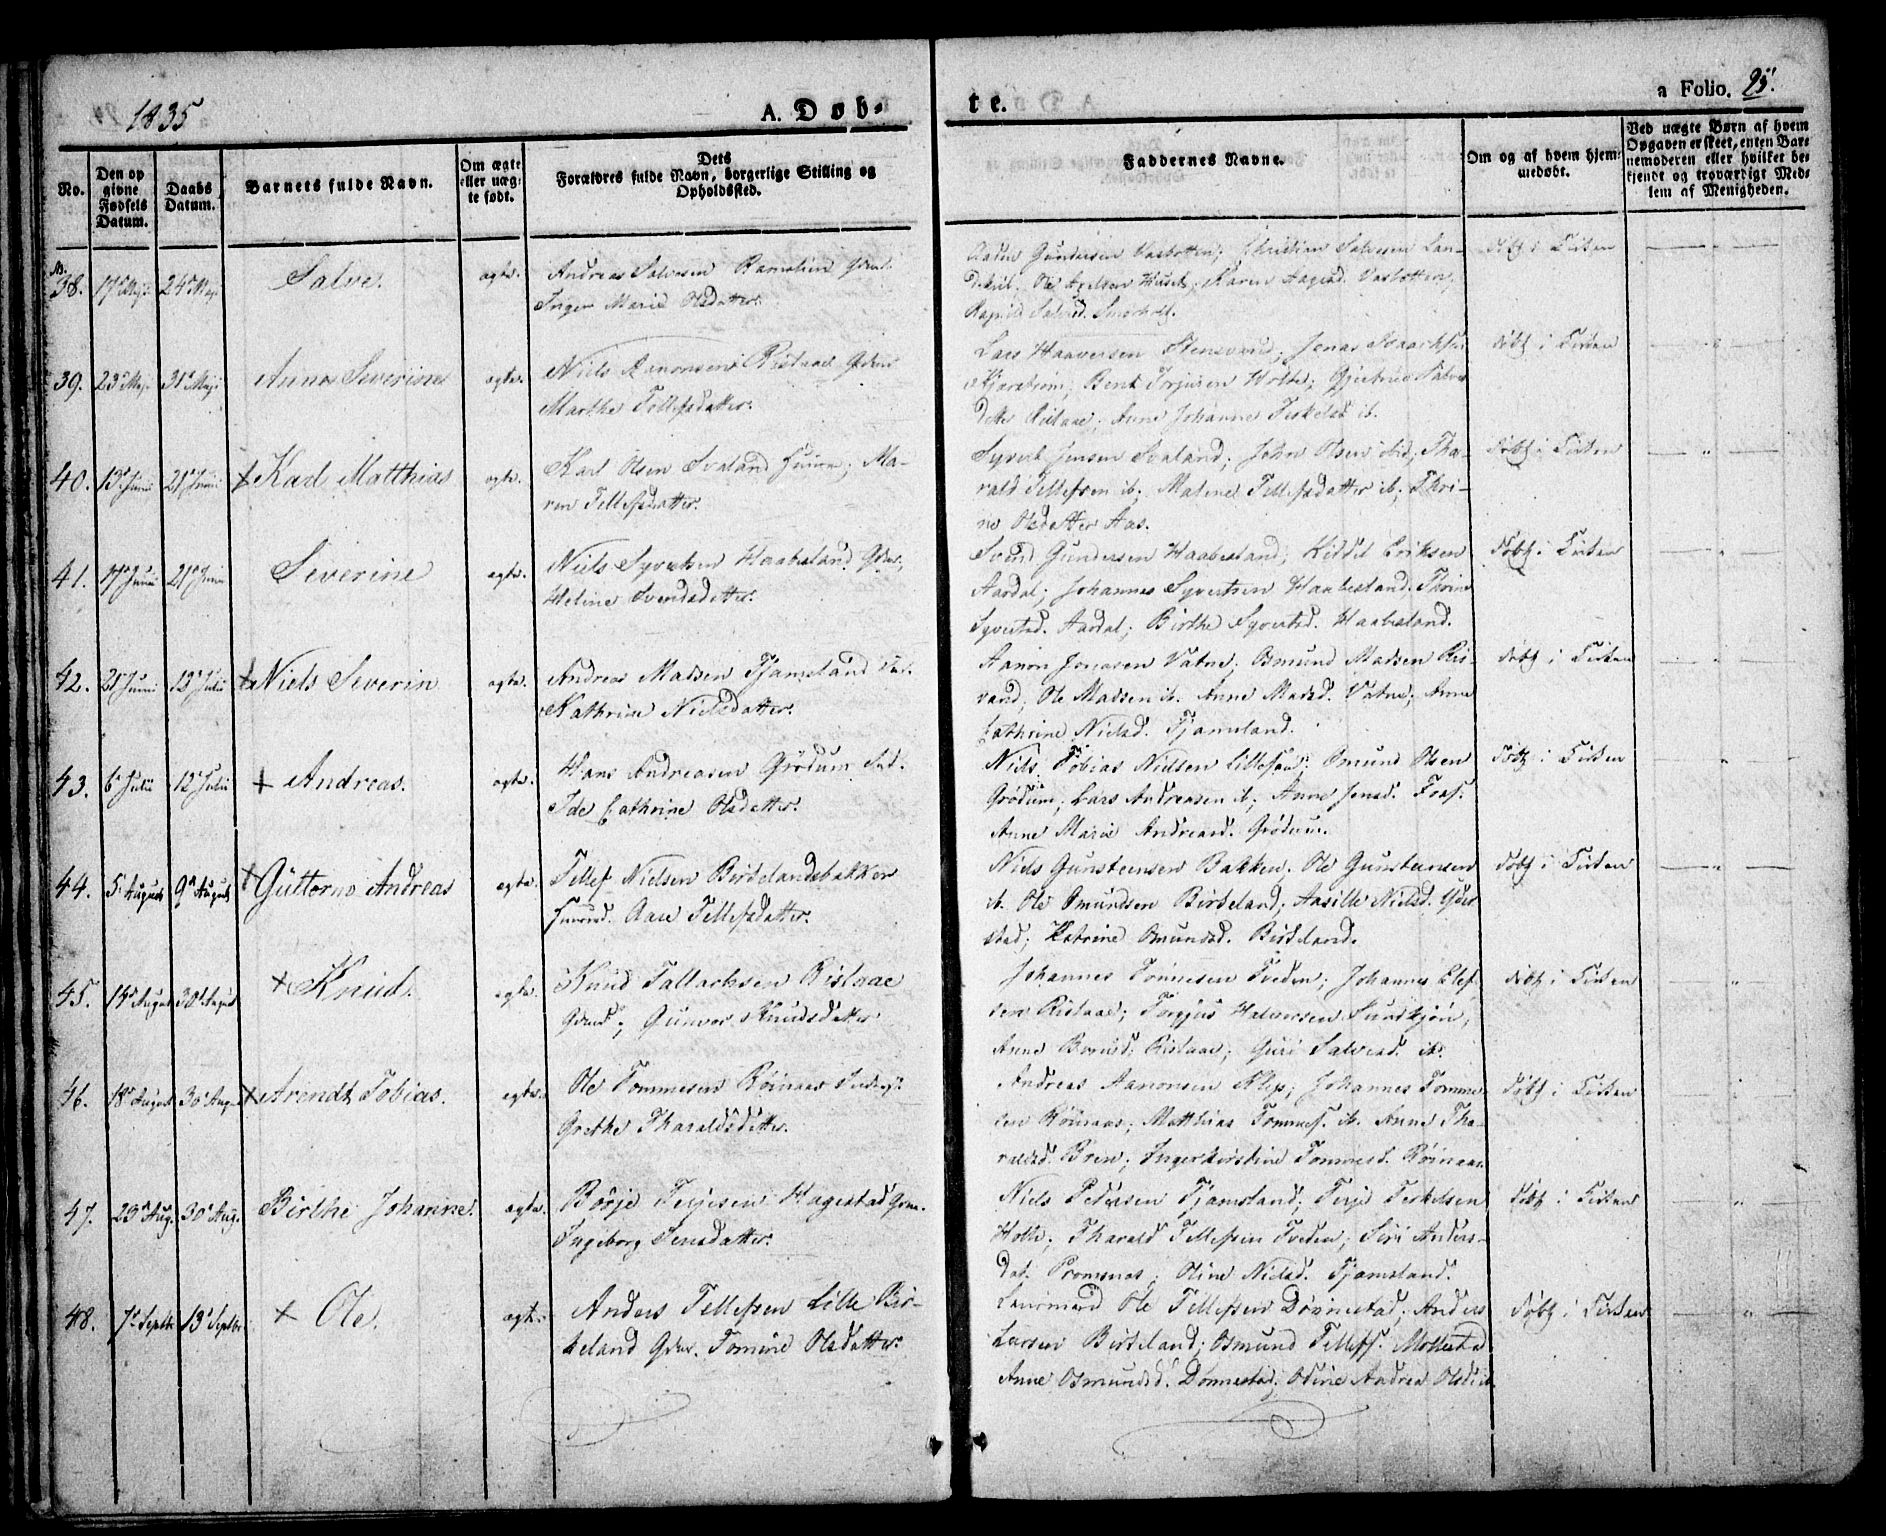 1835
A. Døb-
te.
a Folio. 25.
No.
Den op
givne
Fødsels
Datum.
Daabs
Datum.
Barnets fulde Navn.
Om ægte
eller uæg-
te født.
Dets
Forældres fulde Navn, borgerlige Stilling og
Opholdssted.
Faddernes Navne.
Om og af hvem hjem-
medøbt.
Ved uægte Børn af hvem
Opgaven er skeet, enten Bar-
nemoderen eller hvilket be-
kjendt og troværdigt Med-
lem af Menigheden.
38. 17d Maji 24d Maji Salve. ægte. Andreas Salvesen
Inger Marie Olsdatter.
Gundersen Vasbotten; Christian Salvesen Lan-
Ole Axelsen Karen Aagesd. Vasbotten;
Ragnild Salvesd.
døbt i Kirken
39. 23d Maji 31d Maji Anne Severine ægte. Niels Aanonsen Rislaae Gdmd.
Marthe Tellefsdatter.
Lars Haaversen Stensvand; Jonas Isaachsen
Bent Torjusen Holte; Salves
datter Rislaae; Anne Johanne Terkelsd. ib.
døbt i Kirken
40. 13d Junii 21d Junii + Karl Matthias ægte. Karl Olsen Svaland Huusm; Ma-
ren Tellefsdatter.
Syvert Jensen Svaland; John Olsen ibid; Tha-
rald Tellefsen ib; Malene Tellefsdatter ib; Thri-
ne Olsdatter Aas.
døbt i Kirken
41. 17d Junii 21d Junii Severine ægte. Niels Syvertsen Haabesland Gdmd.,
Heline Svendsdatter.
Svend Gundersen Haabesland; Kiddel Eriksen
Aardal; Johannes Syvertsen Haabesland; Thrine
Syvertsd. Aardal; Birthe Syvertsd. Haabesland.
Døbt i Kirken
42. 21d Junii 12d Julii + Niels Severin ægte. Andreas Madsen Tjamsland
Kathrine Nielsdatter.
Aanon Jonasen Vatne; Osmund Madsen Ris-
vand; Ole Madsen ib. Anne Madsd. Vatne; Anne
Cathrine Nielsd. Tjamsland.
Døbt i Kirken
43. 6d Julii 12d Julii + Andreas. ægte. Hans Andreasen Grødum
Ide Cathrine Olsdatter.
Niels Tobias Nielsen Lillesan; Osmund Olsen
Grødum; Lars Andreasen ib; Anne Jensd. Foss.
Anne Marie Andreasd. Grødum.
Døbt i Kirken
44. 5d August 9d August + Guttorm Andreas ægte. Tellef Nielsen Birkelandsbakken
Huusmd. Aase Tellefsdatter.
Niels Gunsteensen Bakken. Ole Gunsteensen
ib. Ole Osmundsen Birkeland; Aasille Nielsd.
stad; Katrine Osmundsd. Birkeland.
Døbt i Kirken
45. August 30d August + Knud. ægte. Knud Tallachsen Rislaae
Gdmd; Gunvor Knudsdatter
Johannes Tønnesen Tveden; Johannes
sen Rislaae; Torgjus Halvorsen
Anne Rislaae; Guri Salvesd. ib.
døbt i Kirken
46. 18d August 30d August + Arendt Tobias. ægte. Ole Tommesen Røinaas
Grethe Tharaldsdatter.
Andreas Aanonsen Klep; Johannes Tomme-
sen Røinaas; Matthias Tommes. ib. Anne Tha-
raldsd. Bren; Ingerkirstine Tommesd. Røinaas.
Døbt i Kirken
47. 23d Aug. 30d Aug. Birthe Johanne. ægte. Børje Terjesen Hagestad Gdmd.
Ingeborg Jensdatter.
Niels Pedersen Tjamsland; Terje Terkelsen
Holte; Tharald Tellefsen Tveden; Siri Anders-
dat. Promsnes; Oline Nielsd. Tjamsland.
Døbt i Kirken
48. 7d Septbr. 13d Septbr. + Ole. ægte. Anders Tellefsen Lille Bir-
keland Gdmd. Tomine Olsdatter.
Ole Tellefsen Dønnestad; Anders
Larsen Birkeland; Osmund Tellefs. Mollestad
Anne Osmundsd. Dønnestad; Andrea Olsd. ib.
Døbt i Kirken